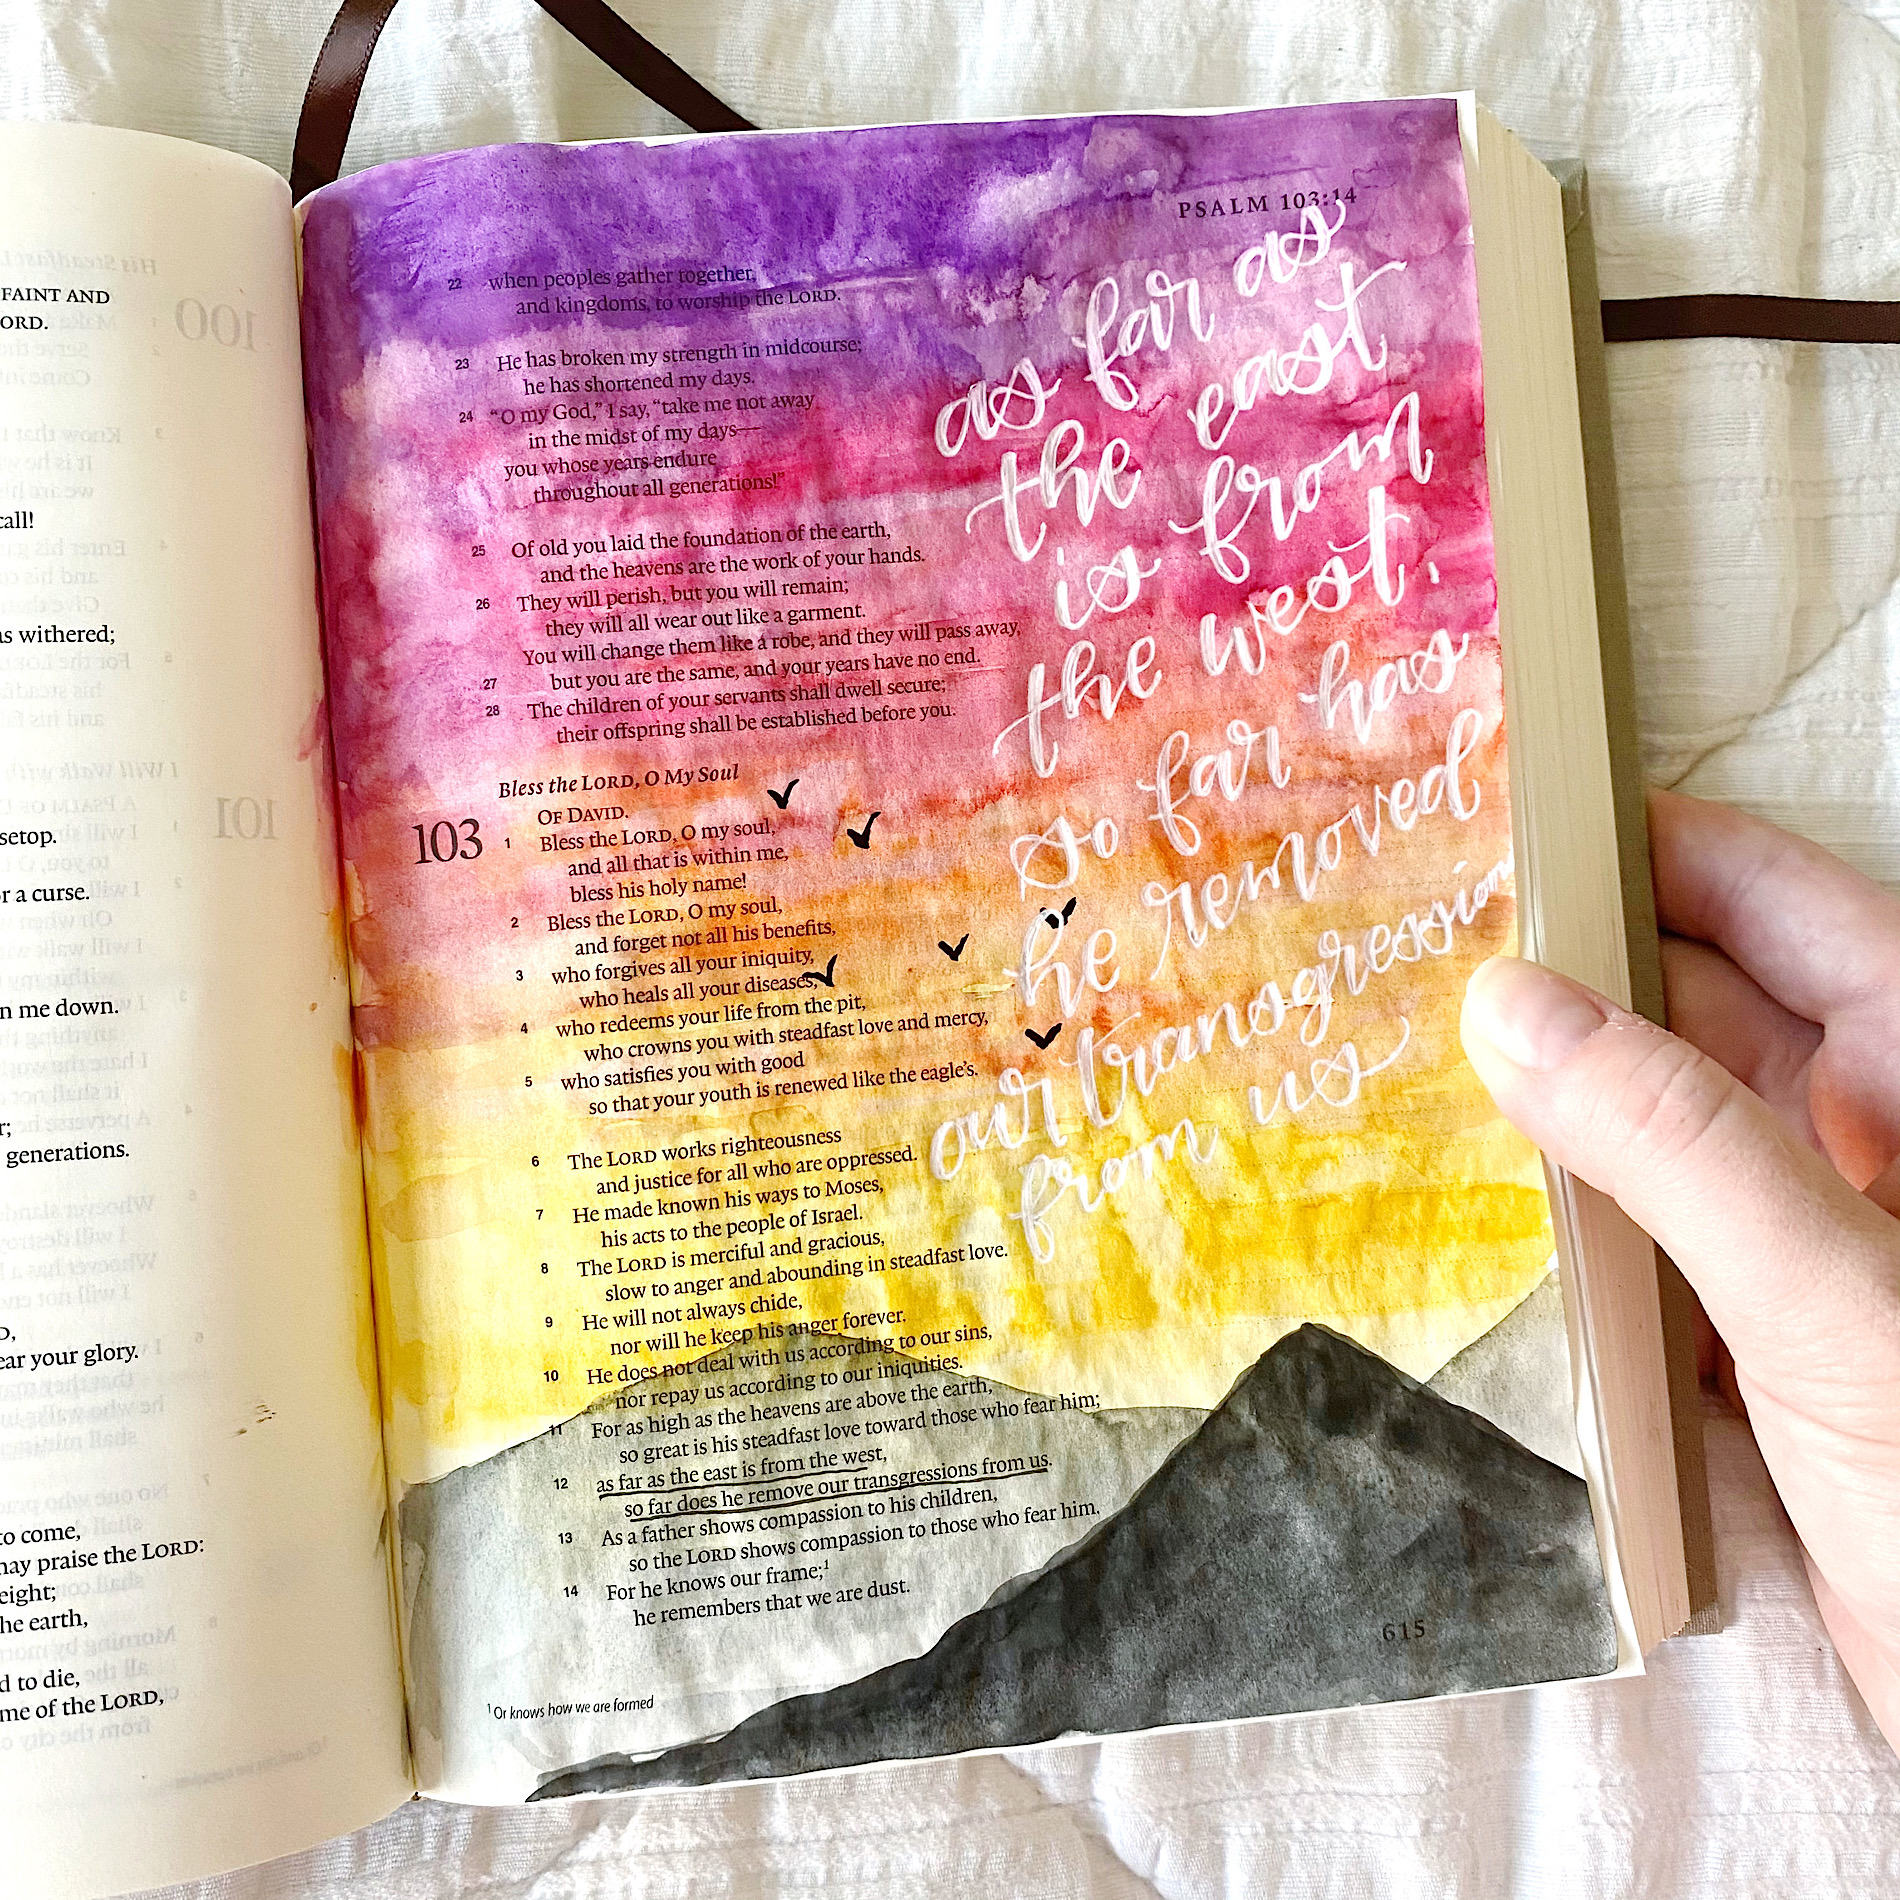 FAINT AND
ORD.
call!
as withered;
setop.
r a curse.
n me down.
r;
generations.
D,
ear your glory.
to come,
nay praise the LORD:
eight;
he earth,
d to die,
me of the LORD,
100
101
PSALM 103:14
22 when peoples gather together,
and kingdoms, to worship the LORD.
23 He has broken my strength in midcourse;
he has shortened my days.
24 “O my God,” I say, “take me not away
in the midst of my days—
you whose years endure
throughout all generations!”
25 Of old you laid the foundation of the earth,
and the heavens are the work of your hands.
26 They will perish, but you will remain;
they will all wear out like a garment.
You will change them like a robe, and they will pass away,
27 but you are the same, and your years have no end.
28 The children of your servants shall dwell secure;
their offspring shall be established before you.
Bless the LORD, O My Soul
OF DAVID.
103 1 Bless the LORD, O my soul,
and all that is within me,
bless his holy name!
2 Bless the LORD, O my soul,
and forget not all his benefits,
3 who forgives all your iniquity,
who heals all your diseases,
4 who redeems your life from the pit,
who crowns you with steadfast love and mercy,
5 who satisfies you with good
so that your youth is renewed like the eagle’s.
6 The LORD works righteousness
and justice for all who are oppressed.
7 He made known his ways to Moses,
his acts to the people of Israel.
8 The LORD is merciful and gracious,
slow to anger and abounding in steadfast love.
9 He will not always chide,
nor will he keep his anger forever.
10 He does not deal with us according to our sins,
nor repay us according to our iniquities.
11 For as high as the heavens are above the earth,
so great is his steadfast love toward those who fear him;
12 as far as the east is from the west,
so far does he remove our transgressions from us.
13 As a father shows compassion to his children,
so the LORD shows compassion to those who fear him.
14 For he knows our frame;1
he remembers that we are dust.
1 Or knows how we are formed
615
as far as
the east
is from
the west,
so far has
he removed
our transgressions
from us